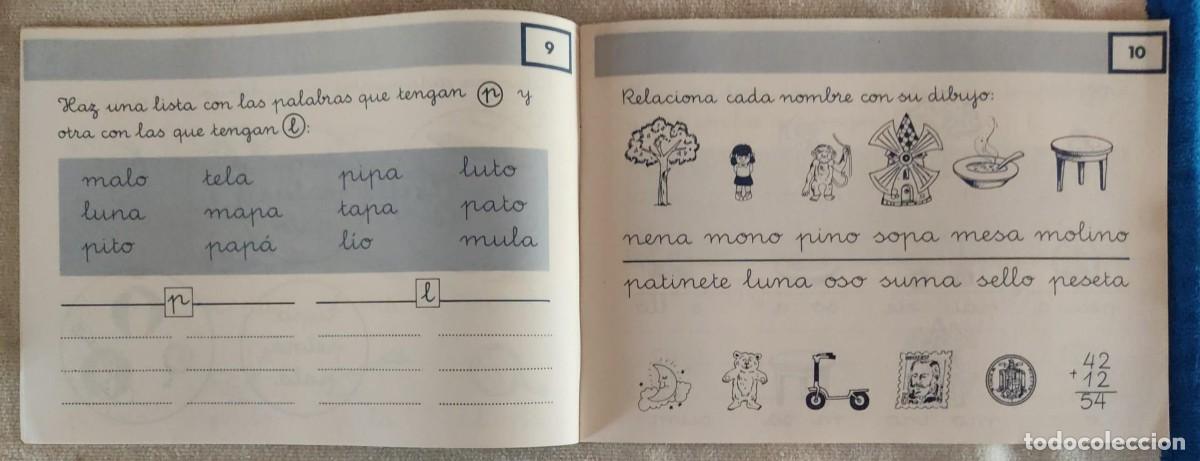 9
Haz una lista con las palabras que tengan p y
otra con las que tengan l:
malo tela pipa luto
luna mapa tapa pato
pito papá lío mula
p l
10
Relaciona cada nombre con su dibujo:
nena mono pino sopa mesa molino
patinete luna oso suma sello peseta
42
+ 12
54
todocoleccion